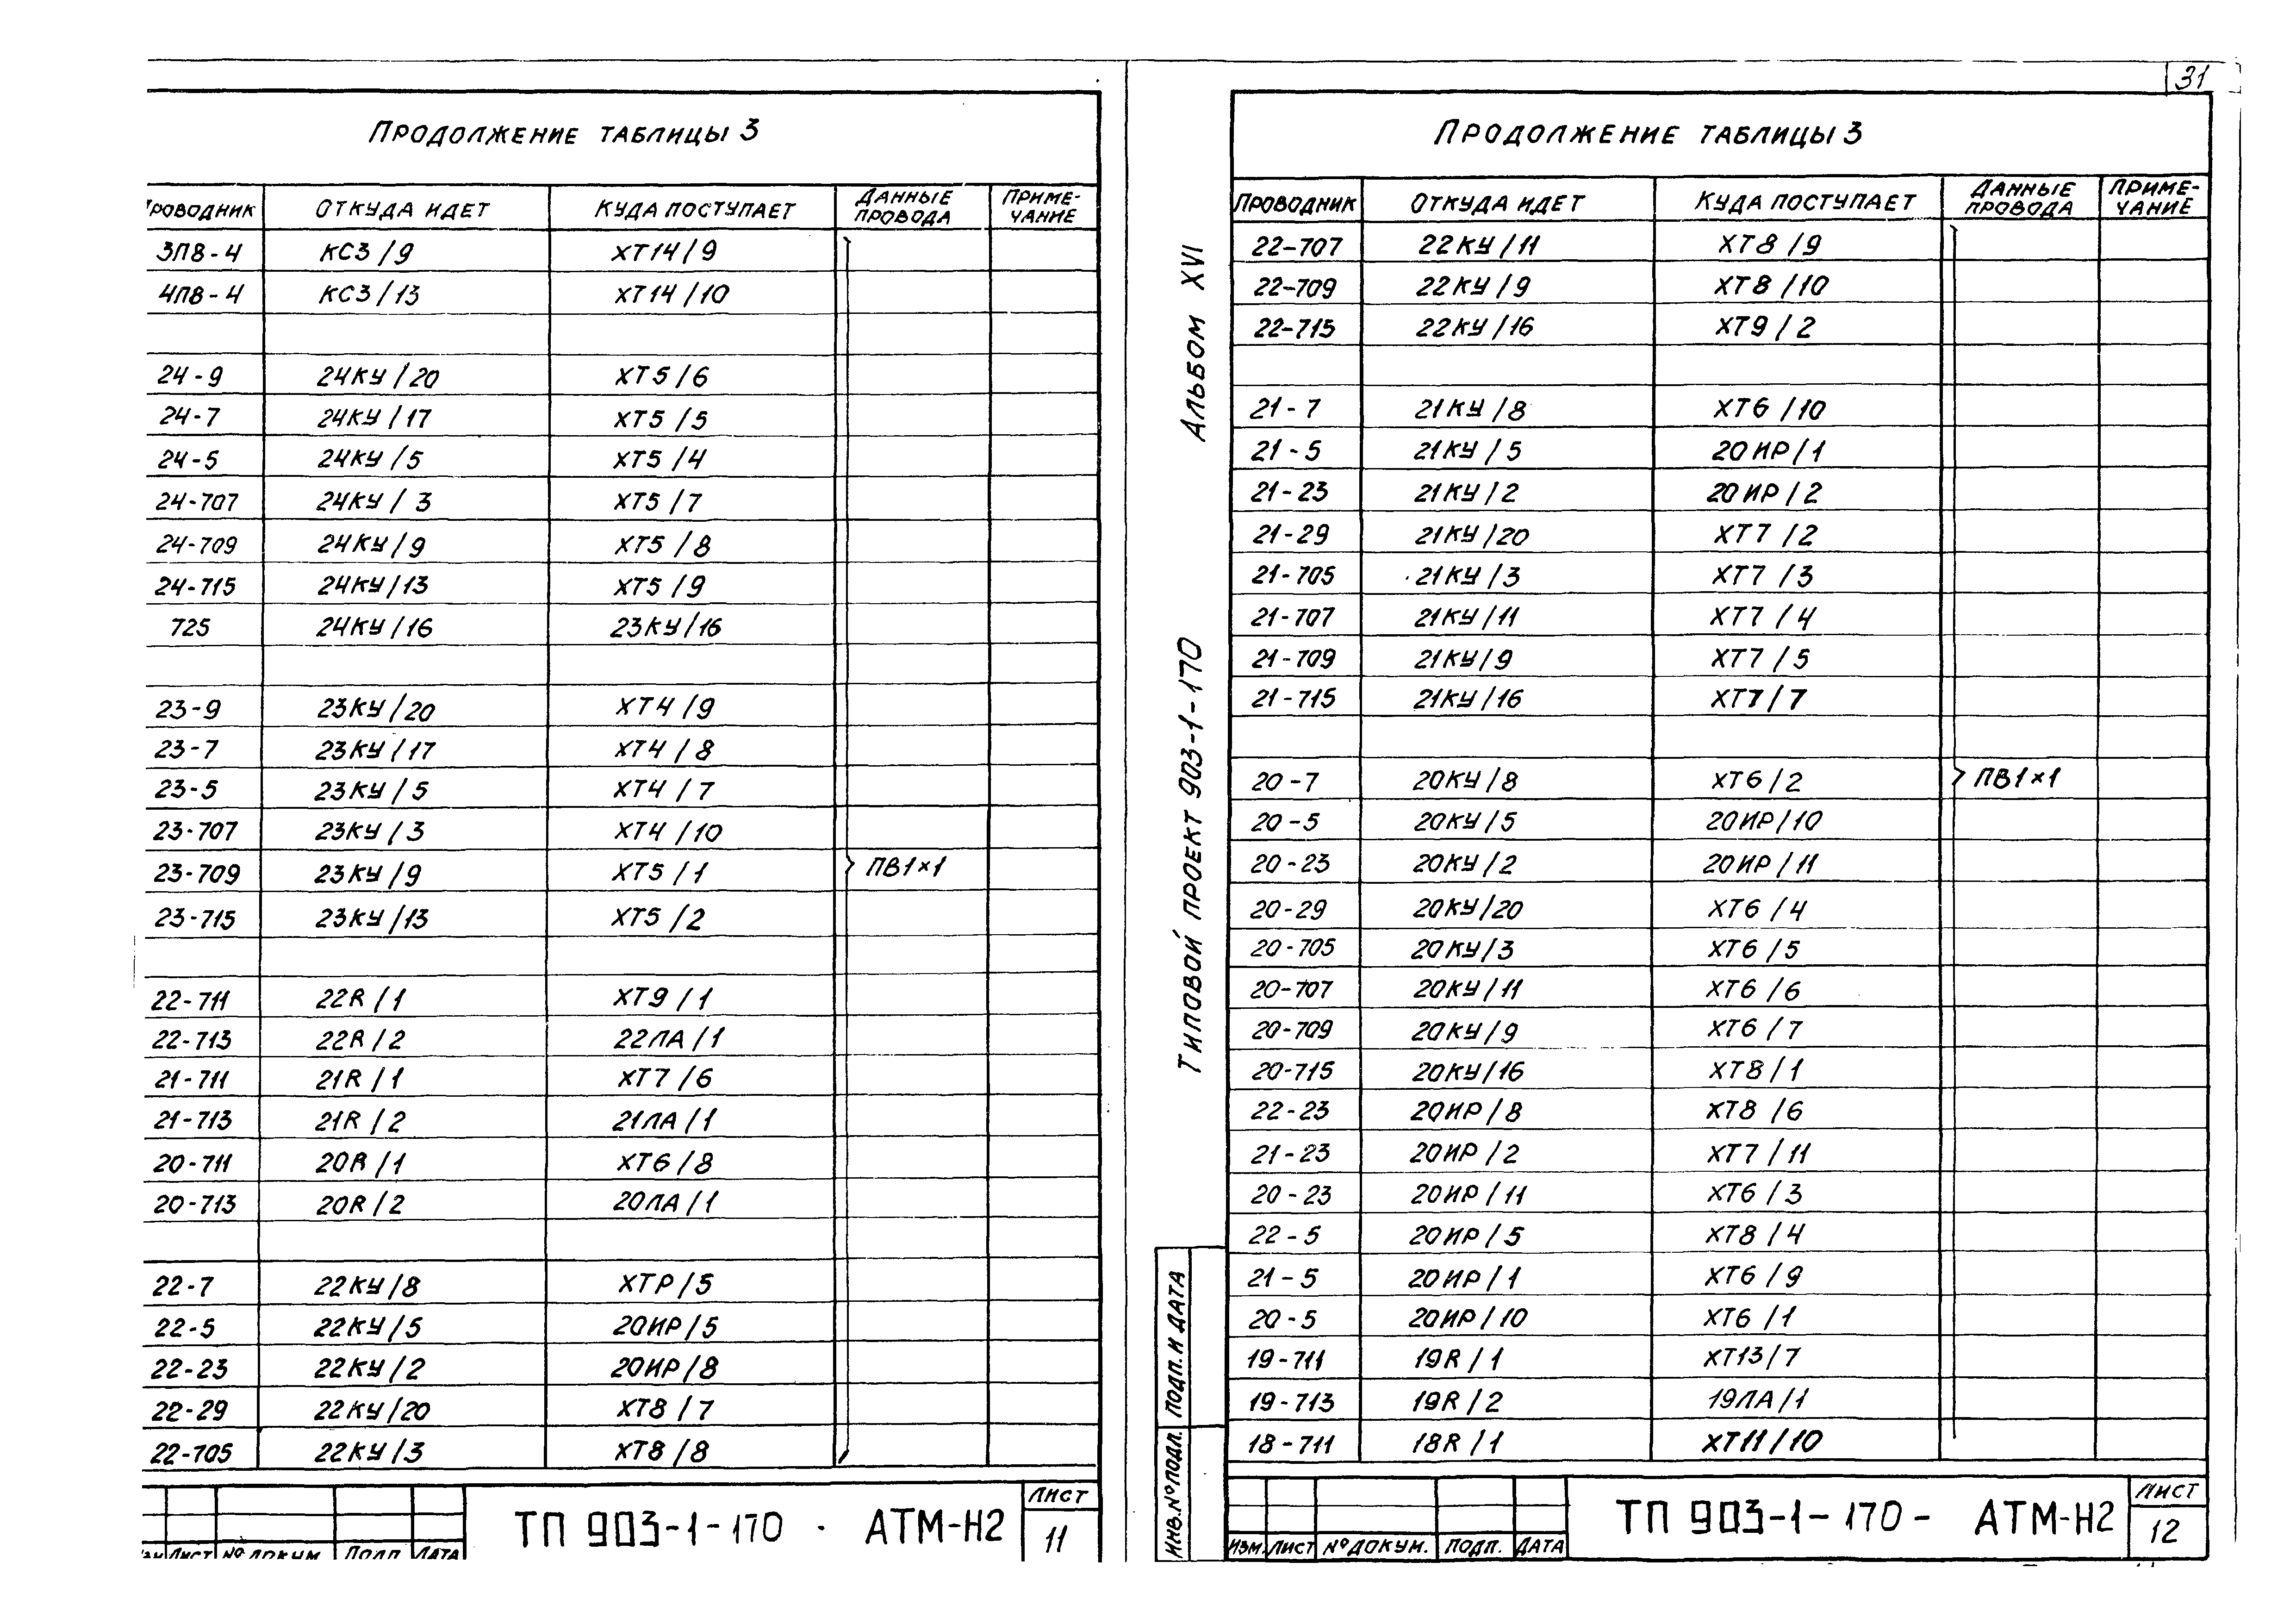 31
ПРОДОЛЖЕНИЕ ТАБЛИЦЫ 3
ПРОВОДНИК ОТКУДА ИДЕТ КУДА ПОСТУПАЕТ ДАННЫЕ ПРОВОДА ПРИМЕ-ЧАНИЕ
3П8-4 КС3/9 ХТ14/9
4П8-4 КС3/13 ХТ14/10
24-9 24КУ/20 ХТ5/6
24-7 24КУ/17 ХТ5/5
24-5 24КУ/5 ХТ5/4
24-707 24КУ/3 ХТ5/7
24-709 24КУ/9 ХТ5/8
24-715 24КУ/13 ХТ5/9
725 24КУ/16 23КУ/16
23-9 23КУ/20 ХТ4/9
23-7 23КУ/17 ХТ4/8
23-5 23КУ/5 ХТ4/7
23-707 23КУ/3 ХТ4/10
23-709 23КУ/9 ХТ5/1 ПВ1×1
23-715 23КУ/13 ХТ5/2
22-711 22R/1 ХТ9/1
22-713 22R/2 22ЛА/1
21-711 21R/1 ХТ7/6
21-713 21R/2 21ЛА/1
20-711 20R/1 ХТ6/8
20-713 20R/2 20ЛА/1
22-7 22КУ/8 ХТР/5
22-5 22КУ/5 20ИР/5
22-23 22КУ/2 20ИР/8
22-29 22КУ/20 ХТ8/7
22-705 22КУ/3 ХТ8/8
ИЗМ ЛИСТ № ДОКУМ. ПОДП. ДАТА
ТП 903-1-170 · АТМ-Н2
ЛИСТ
11
АЛЬБОМ XVI
ТИПОВОЙ ПРОЕКТ 903-1-170
ИНВ.№ПОДЛ. ПОДП. И ДАТА
ПРОДОЛЖЕНИЕ ТАБЛИЦЫ 3
ПРОВОДНИК ОТКУДА ИДЕТ КУДА ПОСТУПАЕТ ДАННЫЕ ПРОВОДА ПРИМЕ-ЧАНИЕ
22-707 22КУ/11 ХТ8/9
22-709 22КУ/9 ХТ8/10
22-715 22КУ/16 ХТ9/2
21-7 21КУ/8 ХТ6/10
21-5 21КУ/5 20ИР/1
21-23 21КУ/2 20ИР/2
21-29 21КУ/20 ХТ7/2
21-705 21КУ/3 ХТ7/3
21-707 21КУ/11 ХТ7/4
21-709 21КУ/9 ХТ7/5
21-715 21КУ/16 ХТ7/7
20-7 20КУ/8 ХТ6/2 ПВ1×1
20-5 20КУ/5 20ИР/10
20-23 20КУ/2 20ИР/11
20-29 20КУ/20 ХТ6/4
20-705 20КУ/3 ХТ6/5
20-707 20КУ/11 ХТ6/6
20-709 20КУ/9 ХТ6/7
20-715 20КУ/16 ХТ8/1
22-23 20ИР/8 ХТ8/6
21-23 20ИР/2 ХТ7/11
20-23 20ИР/11 ХТ6/3
22-5 20ИР/5 ХТ8/4
21-5 20ИР/1 ХТ6/9
20-5 20ИР/10 ХТ6/1
19-711 19R/1 ХТ13/7
19-713 19R/2 19ЛА/1
18-711 18R/1 ХТ11/10
ИЗМ. ЛИСТ №ДОКУМ. ПОДП. ДАТА
ТП 903-1-170- АТМ-Н2
ЛИСТ
12